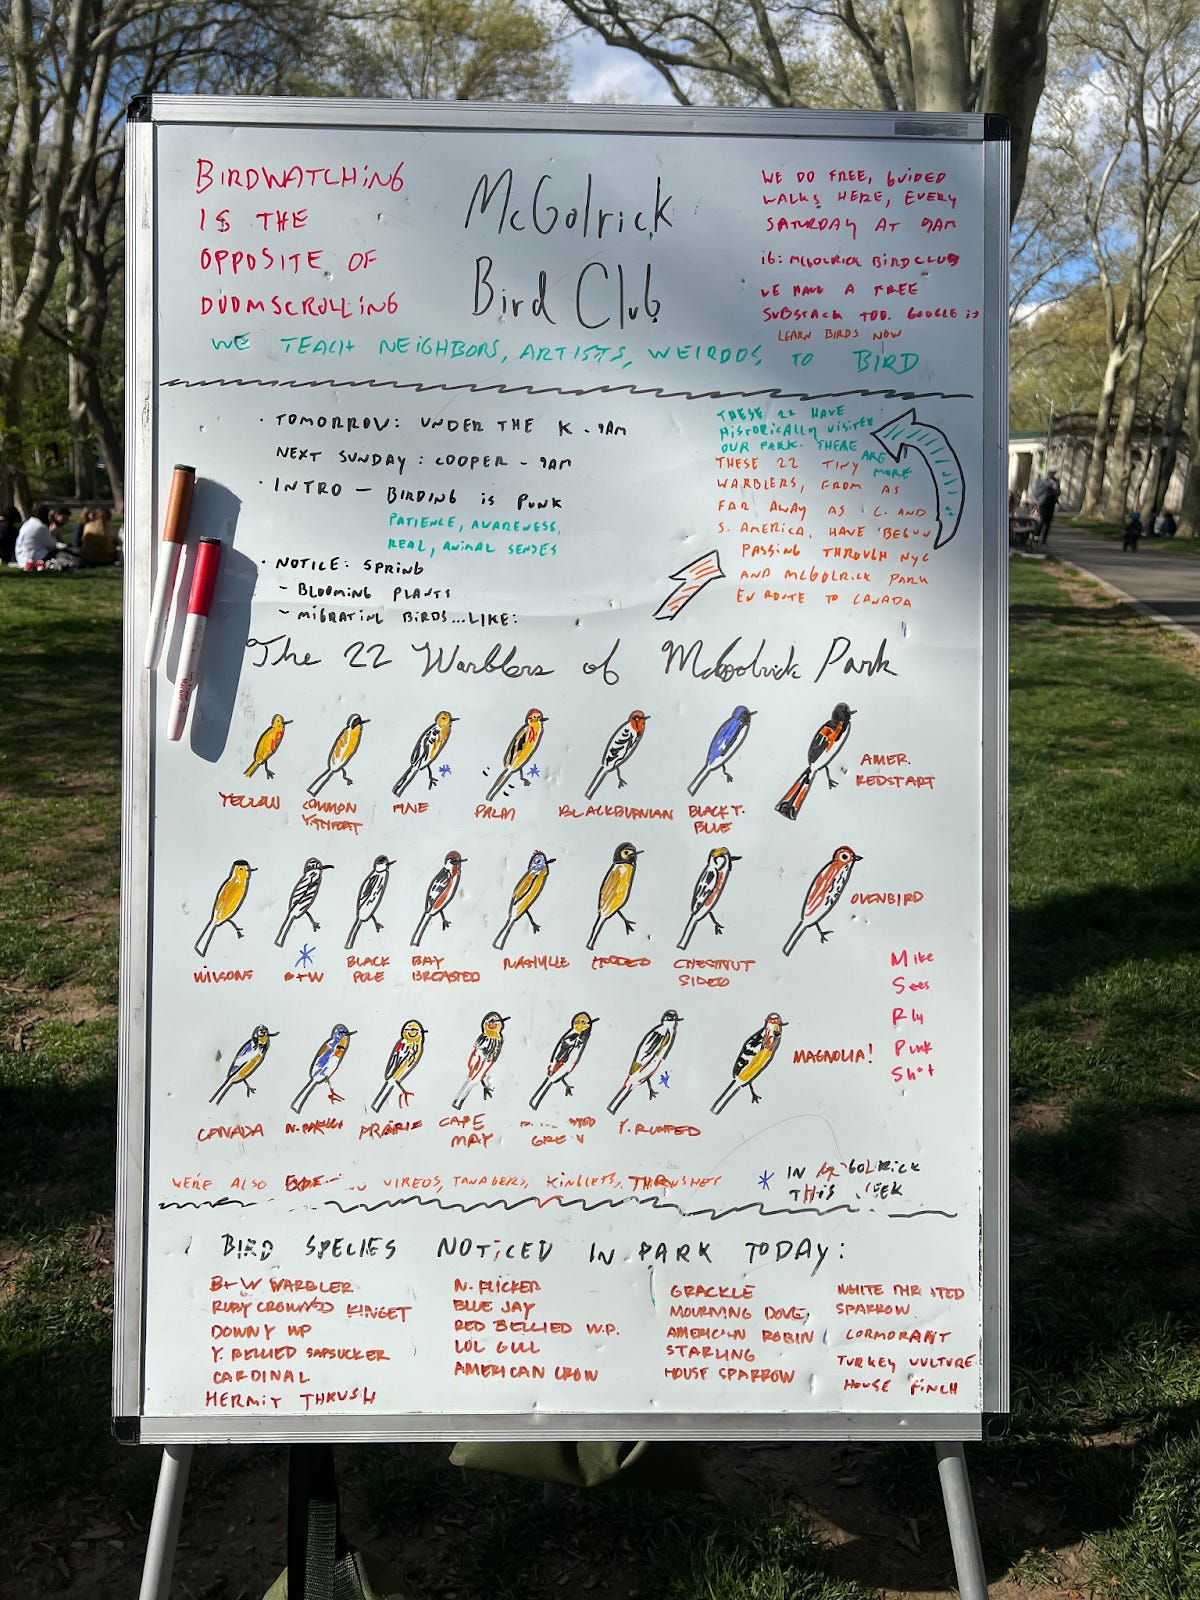 BIRDWATCHING
IS THE
OPPOSITE OF
DOOMSCROLLING
McGolrick
Bird Club
WE DO FREE, GUIDED
WALKS HERE, EVERY
SATURDAY AT 9AM
IG: MCGOLRICK BIRDCLUB
WE HAVE A FREE
SUBSTACK TOO. GOOGLE IT
LEARN BIRDS NOW
WE TEACH NEIGHBORS, ARTISTS, WEIRDOS TO BIRD
· TOMORROW: UNDER THE K - 9AM
NEXT SUNDAY: COOPER - 9AM
· INTRO — BIRDING IS PUNK
PATIENCE, AWARENESS,
REAL, ANIMAL SENSES
· NOTICE: SPRING
- BLOOMING PLANTS
- MIGRATING BIRDS...LIKE:
THESE 22 HAVE
HISTORICALLY VISITED
OUR PARK. THERE ARE MORE
THESE 22 TINY
WARBLERS, FROM AS
FAR AWAY AS C. AND
S. AMERICA, HAVE BEGUN
PASSING THROUGH NYC
AND MCGOLRICK PARK
EN ROUTE TO CANADA
The 22 Warblers of McGolrick Park
YELLOW
COMMON
Y. THROAT
PINE
*
PALM
*
BLACKBURNIAN
BLACK T.
BLUE
AMER.
REDSTART
WILSONS
*
B+W
BLACK
POLE
BAY
BREASTED
NASHVILLE
HOODED
CHESTNUT
SIDED
OVENBIRD
Mike
Sees
Fly
Punk
Sh*t
CANADA
N. PARULA
PRARIE
CAPE
MAY
GREEN
Y. RUMPED
*
MAGNOLIA!
WE'RE ALSO VIREOS, TANAGERS, KINGLETS, THRUSHES
* IN McGOLRICK
THIS WEEK
BIRD SPECIES NOTICED IN PARK TODAY:
B+W WARBLER
RUBY CROWNED KINGET
DOWNY WP
Y. BELLIED SAPSUCKER
CARDINAL
HERMIT THRUSH
N. FLICKER
BLUE JAY
RED BELLIED W.P.
LOL GULL
AMERICAN CROW
GRACKLE
MOURNING DOVE
AMERICAN ROBIN
STARLING
HOUSE SPARROW
WHITE THROATED
SPARROW
CORMORANT
TURKEY VULTURE
HOUSE FINCH